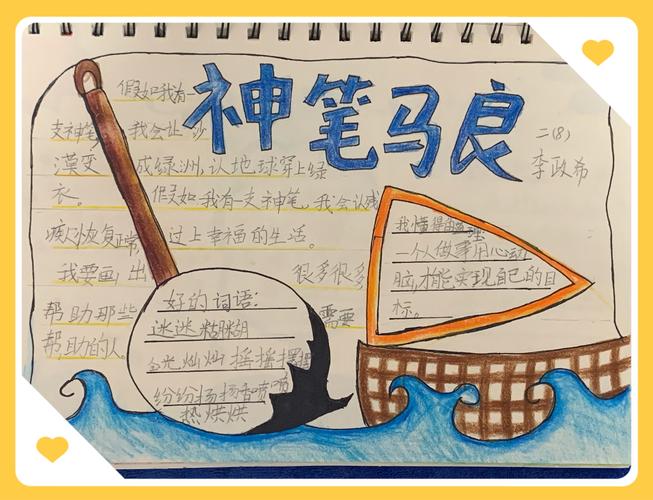 神笔马良
二(8)
李政希
假如我有一
支神笔,我会让沙
漠变成绿洲,认地球穿上绿
衣。假如我有一支神笔,我会认残
疾人恢复正常,过上幸福的生活。
我要画出很多很多
帮助那些需要
帮助的人。
好的词语:
迷迷糊糊
金光灿灿 摇摇摆摆
纷纷扬扬 香喷喷
热烘烘
我懂得的道理:
一个人做事用心动
脑,才能实现自己的目
标。